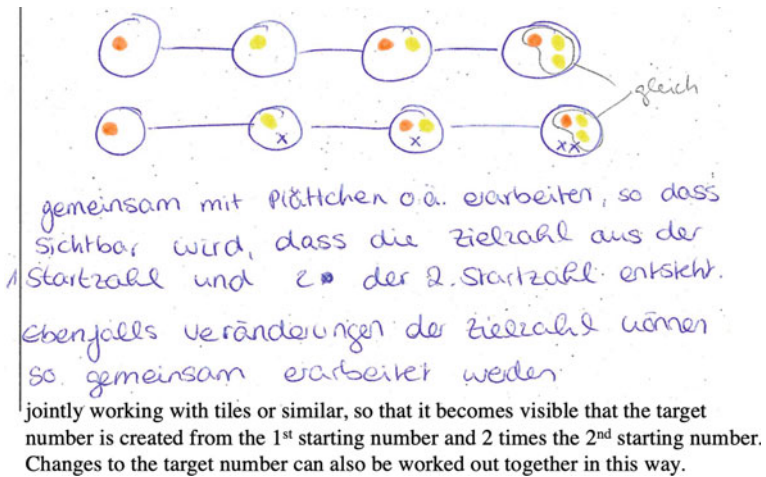 gleich
x x xx
gemeinsam mit Plättchen o.ä. erarbeiten, so dass
sichtbar wird, dass die Zielzahl aus der
1 Startzahl und 2• der 2. Startzahl entsteht.
Ebenfalls Veränderungen der Zielzahl können
so gemeinsam erarbeitet werden
jointly working with tiles or similar, so that it becomes visible that the target
number is created from the 1st starting number and 2 times the 2nd starting number.
Changes to the target number can also be worked out together in this way.